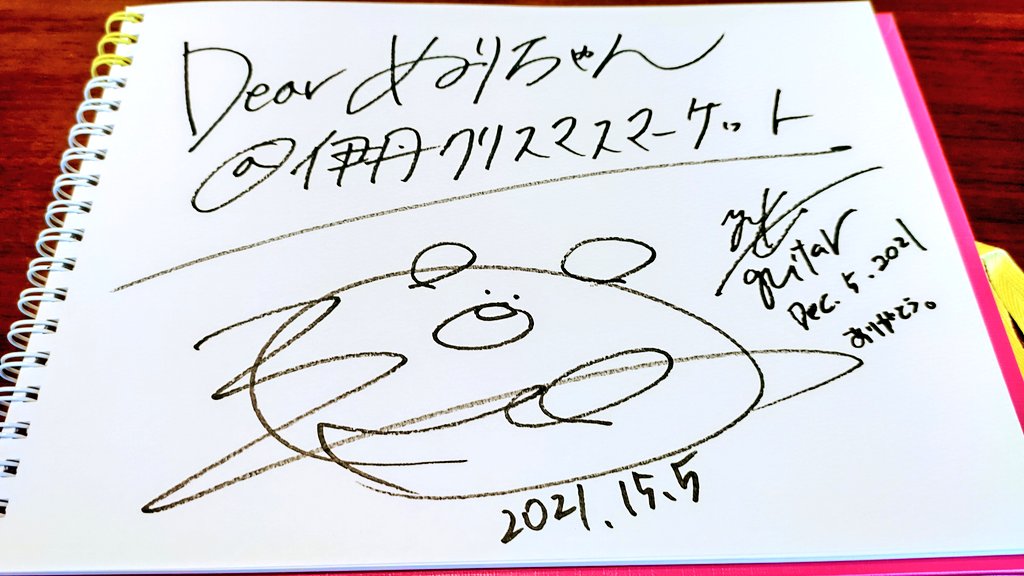 Dear めりちゃん
@伊丹クリスマスマーケット
guitar
Dec. 5. 2021
ありがとう。
2021.15.5